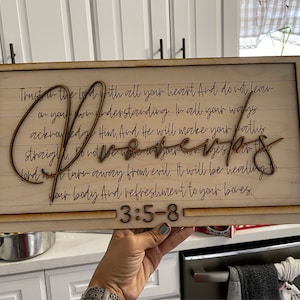 Trust in the Lord with all your heart And do not lean
on your own understanding. In all your ways
acknowledge Him And He will make your paths
straight. Do not
turn away from evil. It will be healing
your body And refreshment to your bones.
Proverbs
3:5-8